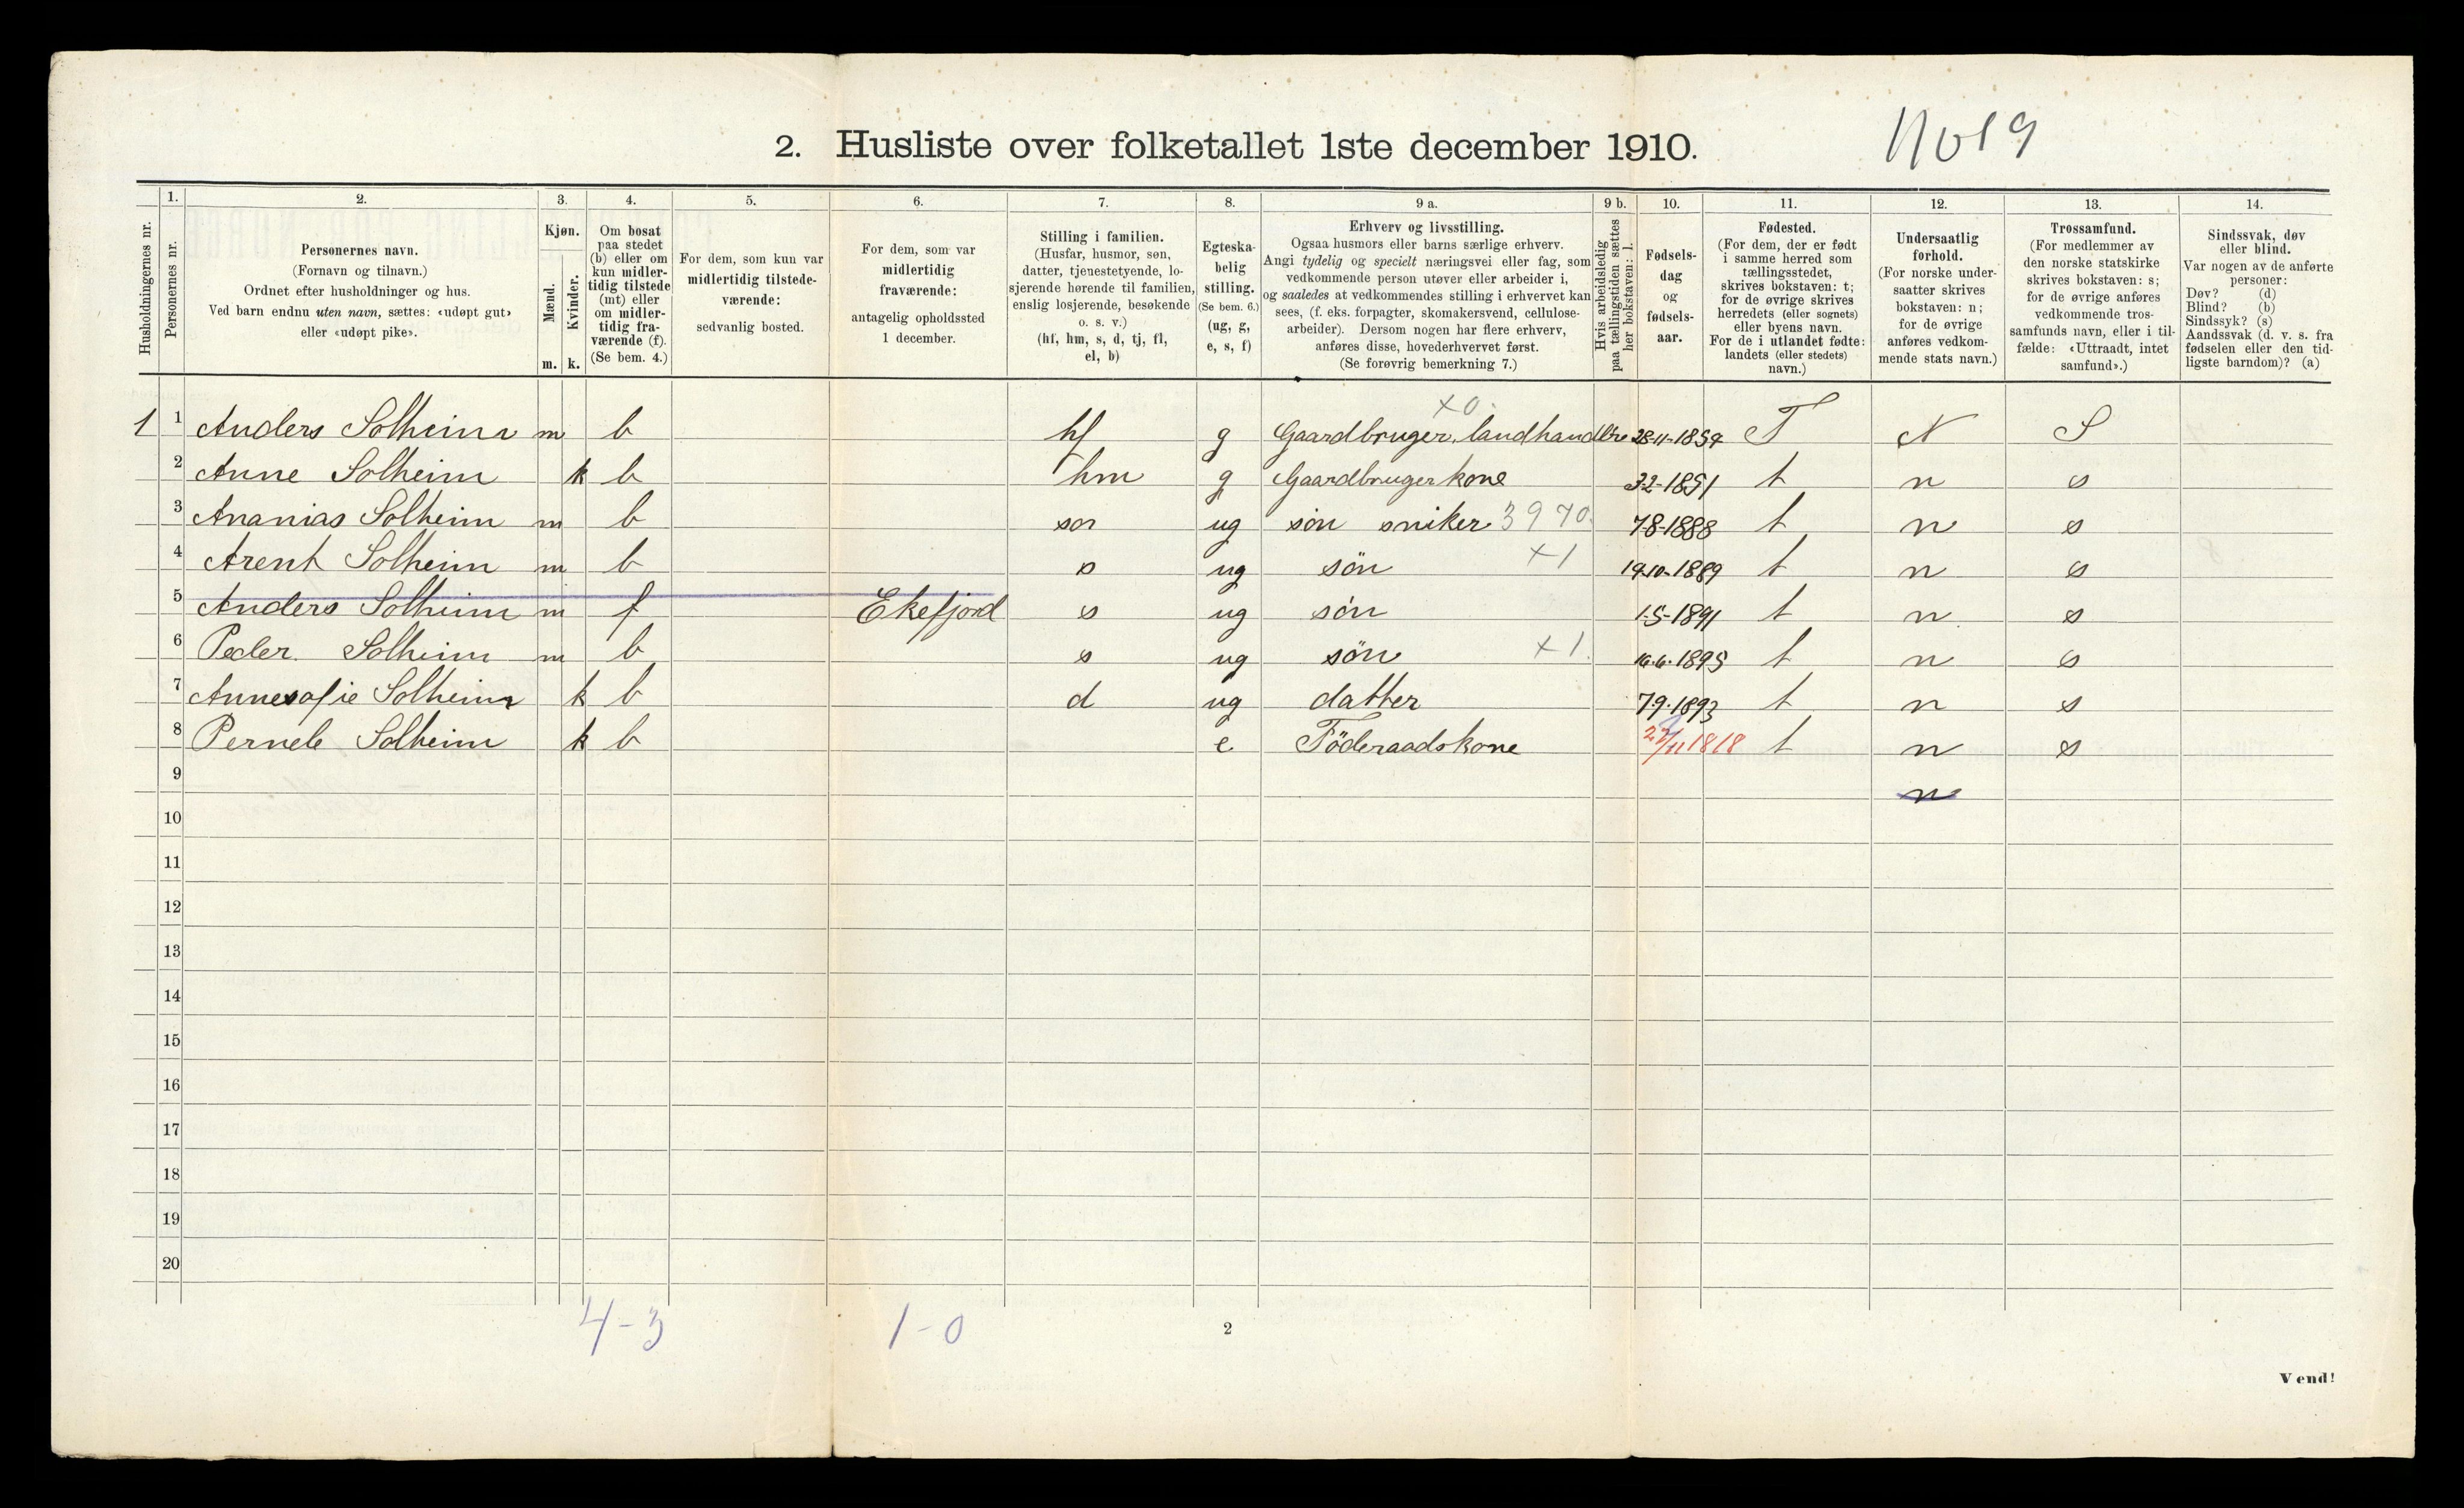 2. Husliste over folketallet 1ste december 1910.
No 19
Husholdningernes nr.
1. Personernes nr.
2. Personernes navn.
(Fornavn og tilnavn.)
Ordnet efter husholdninger og hus.
Ved barn endnu uten navn, sættes: «udøpt gut»
eller «udøpt pike».
3. Kjøn.
Mænd. m.
Kvinder. k.
4. Om bosat
paa stedet
(b) eller om
kun midler-
tidig tilstede
(mt) eller
om midler-
tidig fra-
værende (f).
(Se bem. 4.)
5. For dem, som kun var
midlertidig tilstede-
værende:
sedvanlig bosted.
6. For dem, som var
midlertidig
fraværende:
antagelig opholdssted
1 december.
7. Stilling i familien.
(Husfar, husmor, søn,
datter, tjenestetyende, lo-
sjerende hørende til familien,
enslig losjerende, besøkende
o. s. v.)
(hf, hm, s, d, tj, fl,
el, b)
8. Egteska-
belig
stilling.
(Se bem. 6.)
(ug, g,
e, s, f)
9 a. Erhverv og livsstilling.
Ogsaa husmors eller barns særlige erhverv.
Angi tydelig og specielt næringsvei eller fag, som
vedkommende person utøver eller arbeider i,
og saaledes at vedkommendes stilling i erhvervet kan
sees, (f. eks. forpagter, skomakersvend, cellulose-
arbeider). Dersom nogen har flere erhverv,
anføres disse, hovederhvervet først.
(Se forøvrig bemerkning 7.)
9 b. Hvis arbeidsledig
paa tællingstiden sættes
her bokstaven: l.
10. Fødsels-
dag
og
fødsels-
aar.
11. Fødested.
(For dem, der er født
i samme herred som
tællingsstedet,
skrives bokstaven: t;
for de øvrige skrives
herredets (eller sognets)
eller byens navn.
For de i utlandet fødte:
landets (eller stedets)
navn.)
12. Undersaatlig
forhold.
(For norske under-
saatter skrives
bokstaven: n;
for de øvrige
anføres vedkom-
mende stats navn.)
13. Trossamfund.
(For medlemmer av
den norske statskirke
skrives bokstaven: s;
for de øvrige anføres
vedkommende tros-
samfunds navn, eller i til-
fælde: «Uttraadt, intet
samfund».)
14. Sindssvak, døv
eller blind.
Var nogen av de anførte
personer:
Døv? (d)
Blind? (b)
Sindssyk? (s)
Aandssvak (d. v. s. fra
fødselen eller den tid-
ligste barndom)? (a)
x0.
1 1 Anders Solheim m b hf g Gaardbruger, landhandlere 28-11-1854 T N S
2 Anne Solheim k b hm g Gaardbruger kone 3-2-1851 t n s
3 Ananias Solheim m b søn ug søn sniker 3970. 7-8-1888 t n s
4 Arent Solheim m b s ug søn x1 19-10-1889 t n s
5 Anders Solheim m f Ekefjord s ug søn 1-5-1891 t n s
6 Peder Solheim m b s ug søn x1. 16.6.1895 t n s
7 Annesofie Solheim k b d ug datter 7.9.1893 t n s
8 Pernele Solheim k b e Föderaadskone 22/11 1818 t n s
9 n
10
11
12
13
14
15
16
17
18
19
20
4-3 1-0
2
Vend!